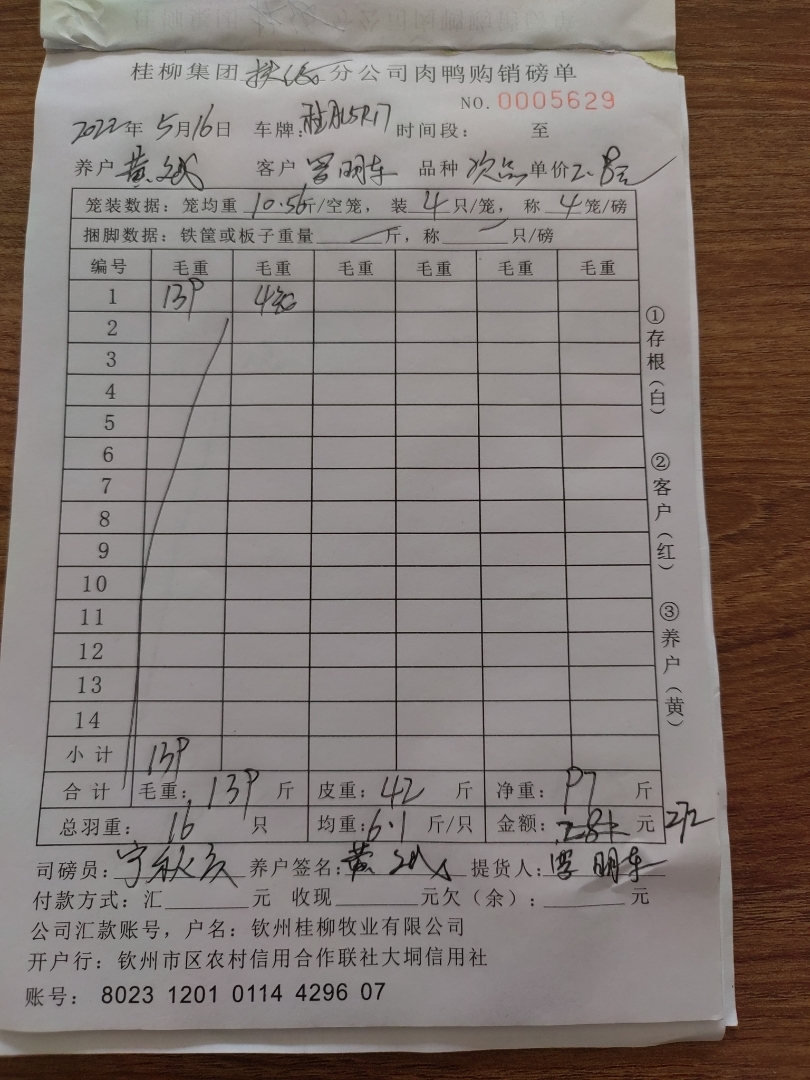 桂柳集团 分公司肉鸭购销磅单
NO. 0005629
2022年 5月16日 车牌: 时间段: 至
养户 黄 客户 罗明东 品种 次品 单价 2.8元
笼装数据: 笼均重 10.56斤/空笼, 装 4 只/笼, 称 4 笼/磅
捆脚数据: 铁筐或板子重量 斤, 称 只/磅
编号 毛重 毛重 毛重 毛重 毛重 毛重
1 139 4笼
2
3
4
5
6
7
8
9
10
11
12
13
14
小计 139
合计 毛重: 139 斤 皮重: 42 斤 净重: 97 斤
总羽重: 16 只 均重: 6.1 斤/只 金额: 元 272
司磅员: 宁秋 养户签名: 黄 提货人: 罗明东
付款方式: 汇 元 收现 元欠(余): 元
公司汇款账号, 户名: 钦州桂柳牧业有限公司
开户行: 钦州市区农村信用合作联社大垌信用社
账号: 8023 1201 0114 4296 07
①存根(白)
②客户(红)
③养户(黄)